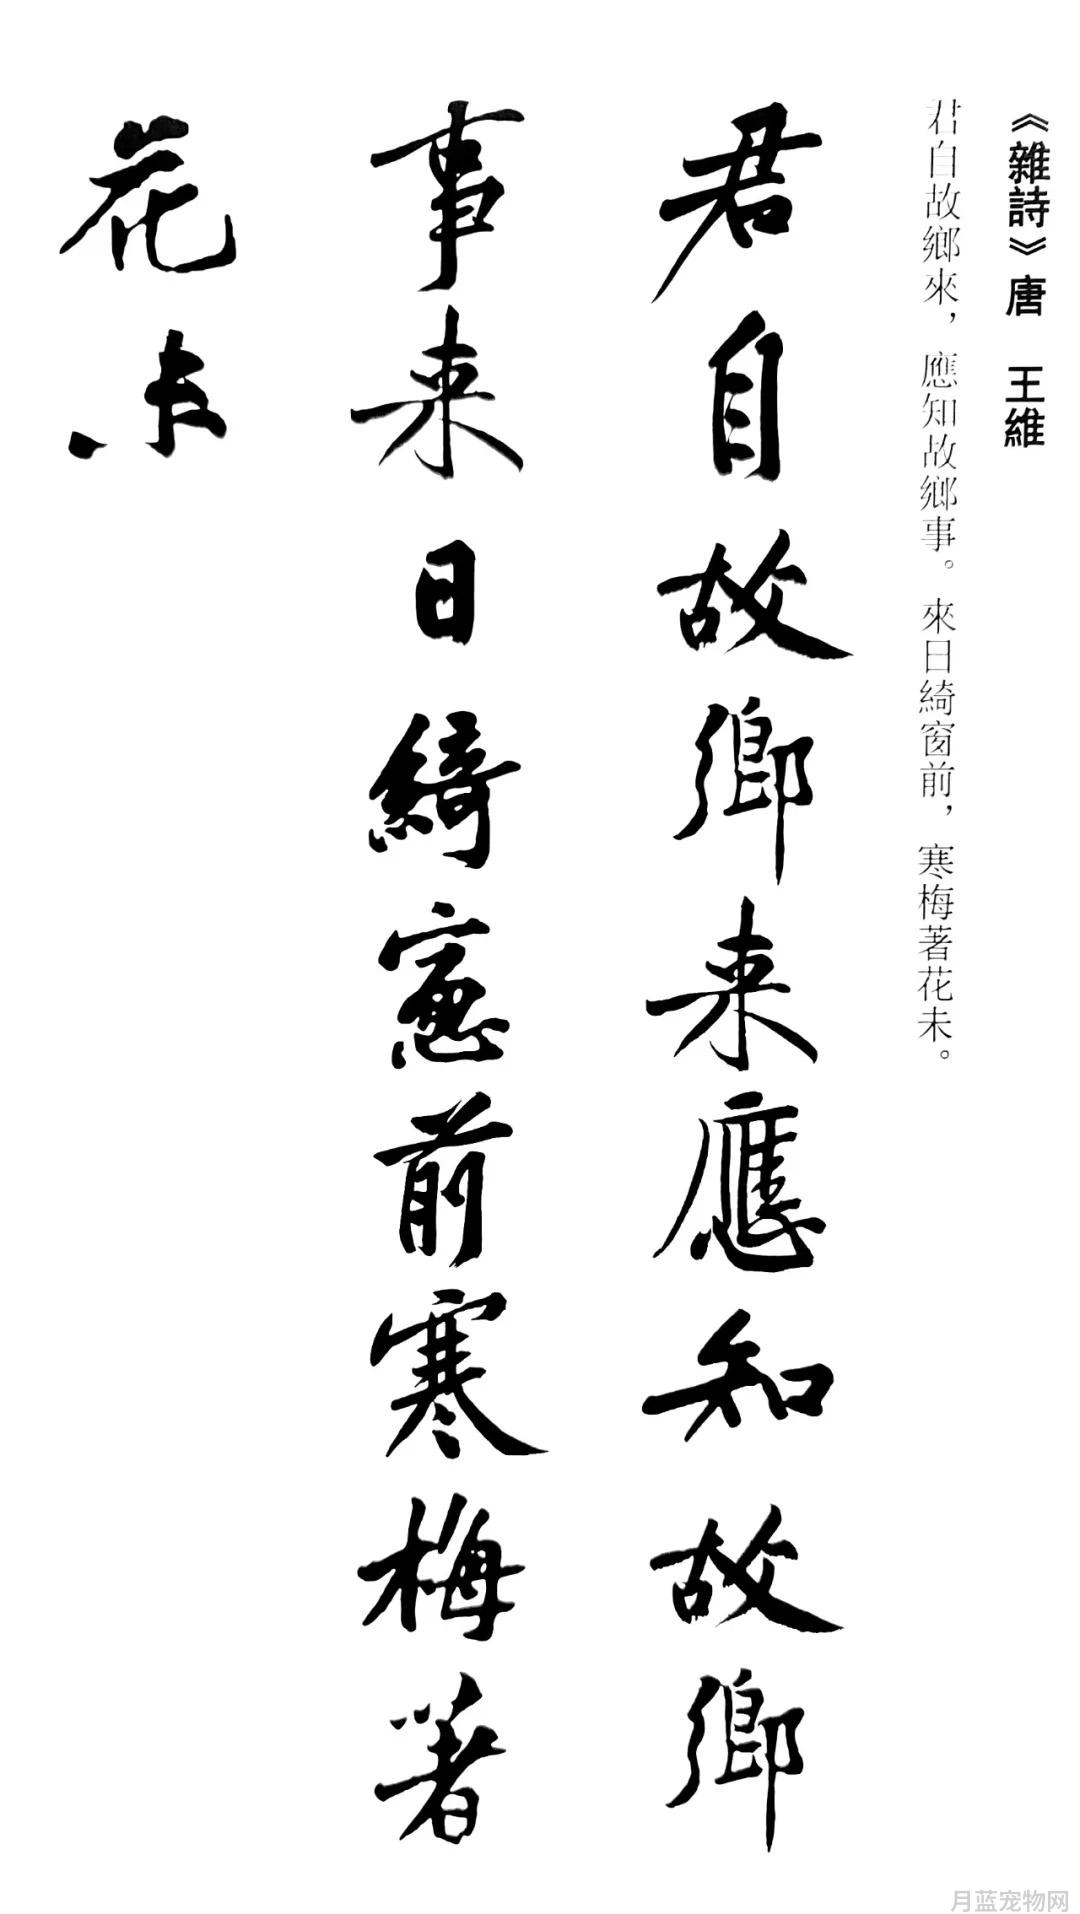 《雜詩》唐　王維
君自故鄉來，應知故鄉事。來日綺窗前，寒梅著花未。
君自故鄉来應知故鄉
事来日綺窻前寒梅著
花未
月蓝宠物网